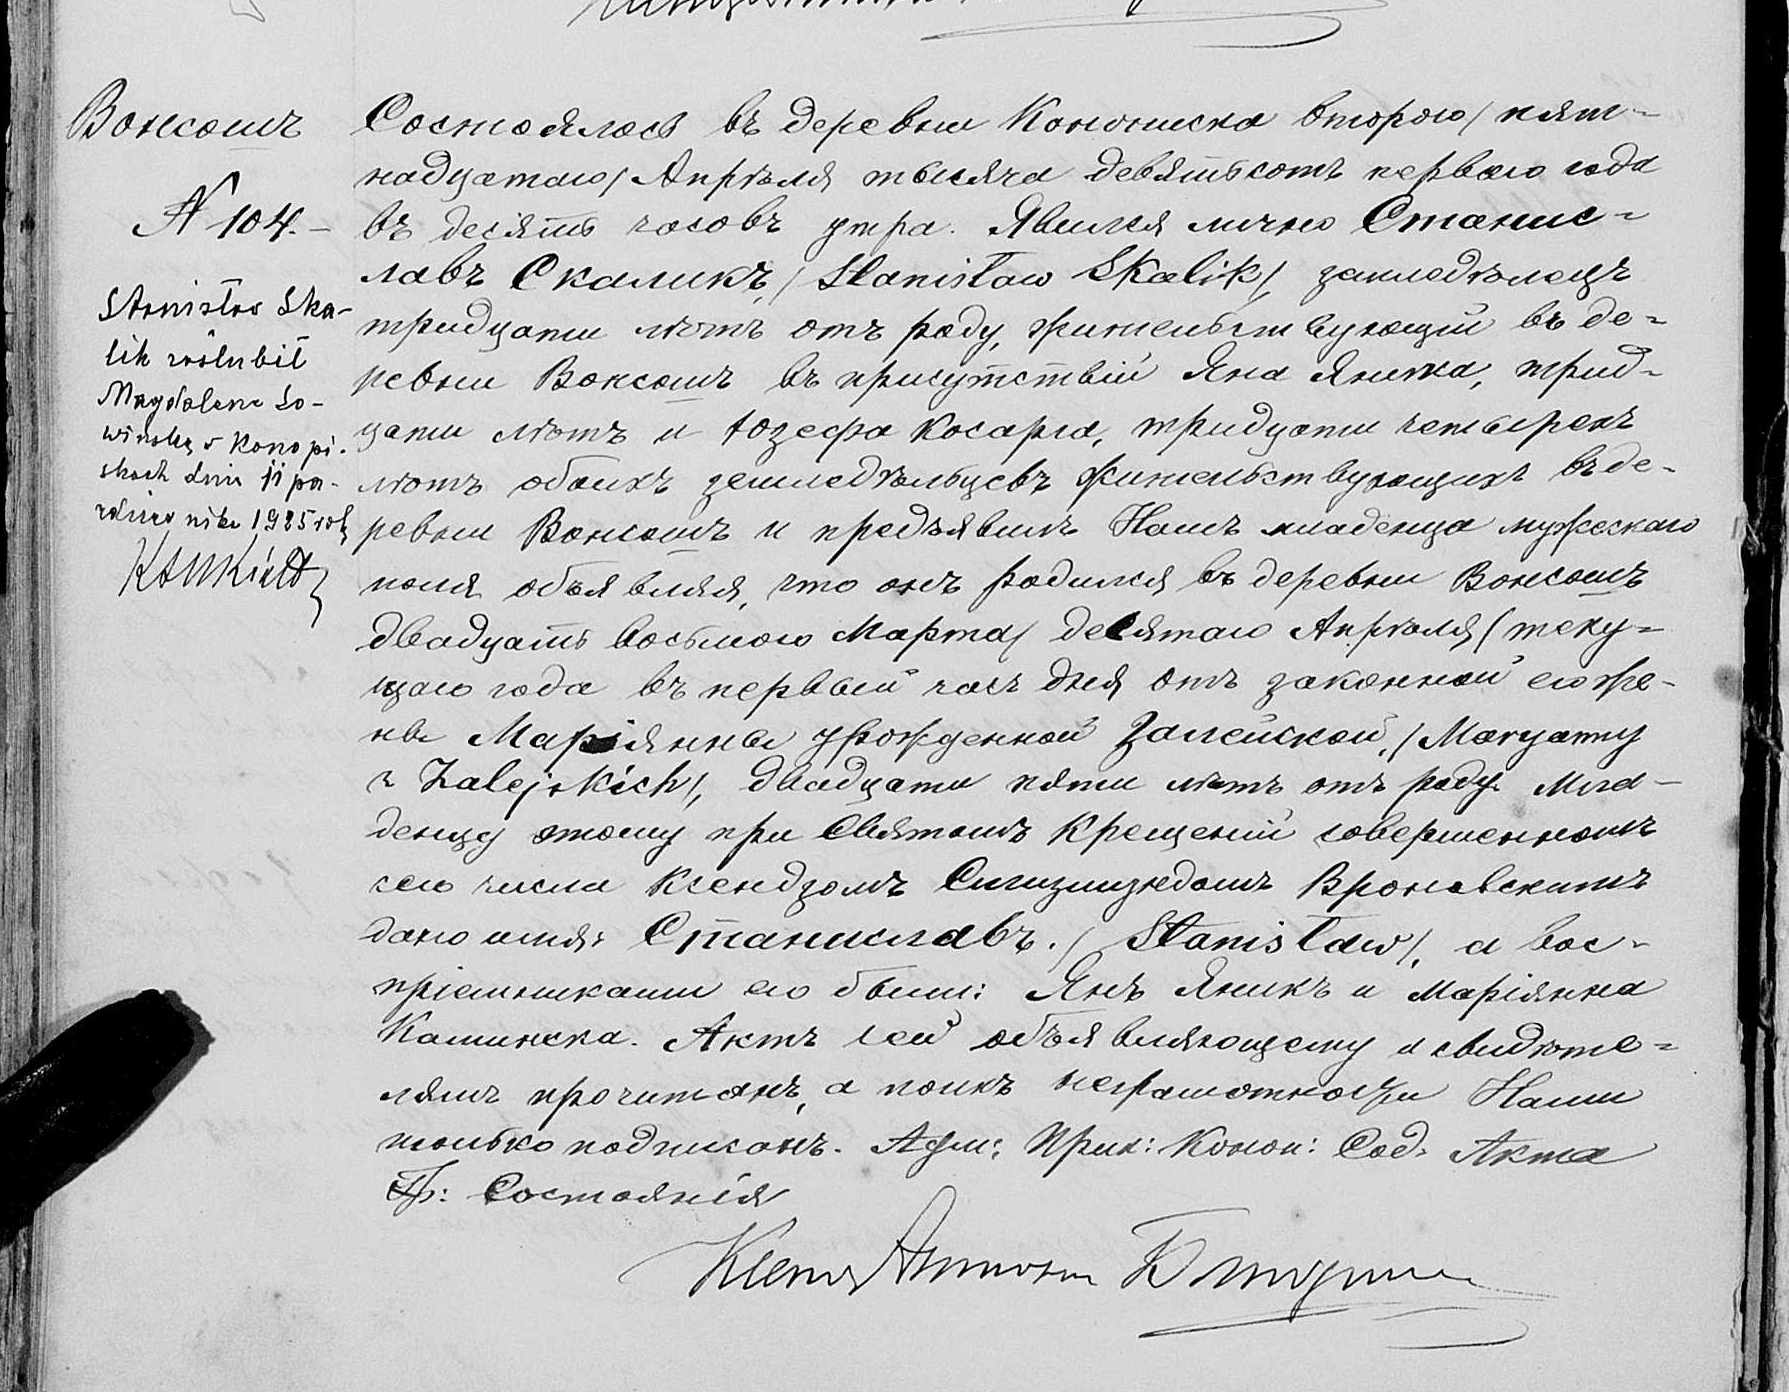 Вонсошъ
N 104.
Stanisław Ska-
lik poślubił
Magdalenę
w Konopi-
skach dnia 11 pa-
ździernika 1925 rok
Состоялось въ деревни Конописка второго / пят-
надцатаго / Апрѣля тысяча девятьсотъ перваго года
въ десять часовъ утра. Явился лично Станис-
лавъ Скаликъ, / Stanisław Skalik /, земледѣлецъ
тридцати лѣтъ отъ роду, жительствующій въ де-
ревни Вонсошъ въ присутствіи Яна Яника, трид-
цати лѣтъ и Юзефа Косаря, тридцати четырехъ
лѣтъ обоихъ земледѣльцевъ жительствующихъ въ де-
ревни Вонсошъ и предъявилъ Намъ младенца мужескаго
пола объявляя, что онъ родился въ деревни Вонсошъ
двадцать восьмого Марта / десятаго Апрѣля / теку-
щаго года въ первый часъ дня отъ законной его же-
ны Маріянны урожденной Залейской, / Maryanny
z Zalejskich /, двадцати пяти лѣтъ отъ роду. Мла-
денцу этому при Святомъ Крещеніи совершенномъ
сего числа Ксендзомъ Сигизмундомъ Вроновскимъ
дано имя: Станиславъ. / Stanisław /, а вос-
пріемниками его были: Янъ Яникъ и Маріянна
Каминска. Актъ сей объявляющему и свидѣте-
лямъ прочитанъ, а поихъ неграмотности Нами
только подписанъ. Адм: Прих: Коноп: Сод. Акта
Гр: Состоянія
Ксендз Антони